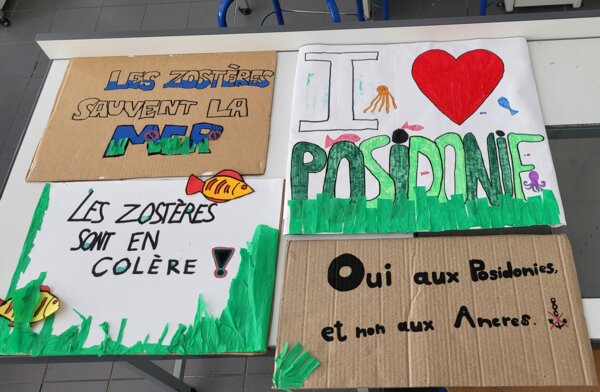 LES ZOSTÈRES
SAUVENT LA
MER
I
POSÍDONIE
LES ZOSTÈRES
SONT EN
COLÈRE !
Oui aux Posidonies,
et non aux Ancres.